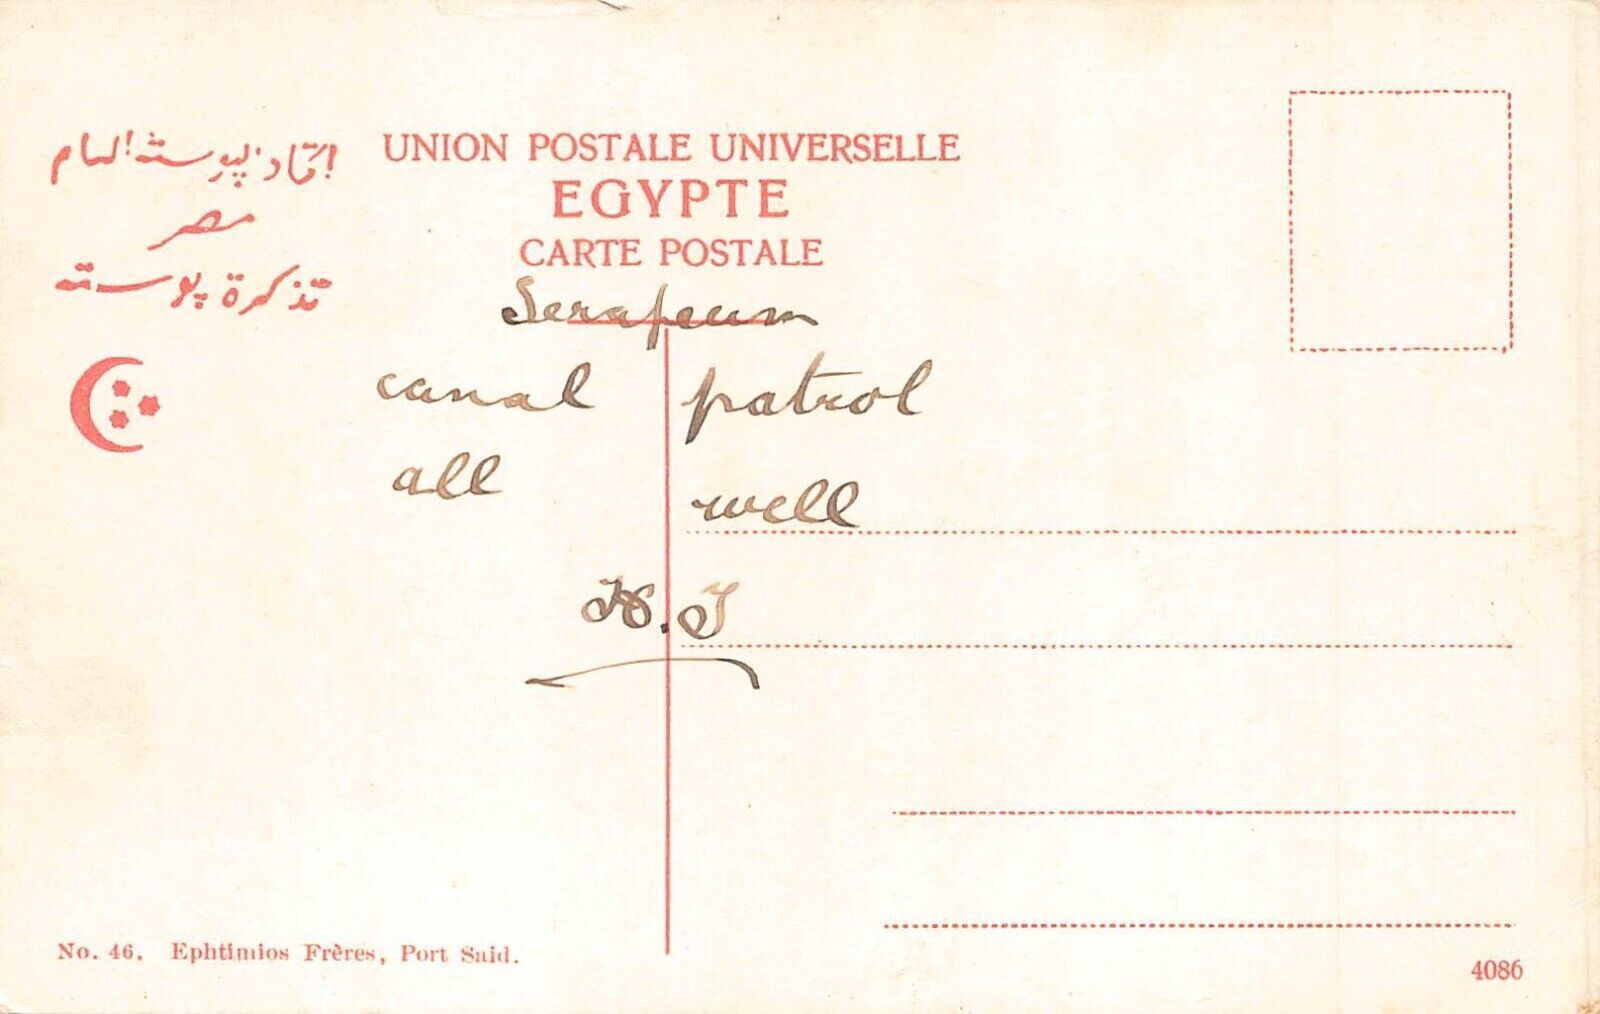 اتحاد البوسته العام
مصر
تذكرة بوسته
UNION POSTALE UNIVERSELLE
EGYPTE
CARTE POSTALE
Serapeum
canal patrol
all well
H.J
No. 46. Ephtimios Frères, Port Said.
4086